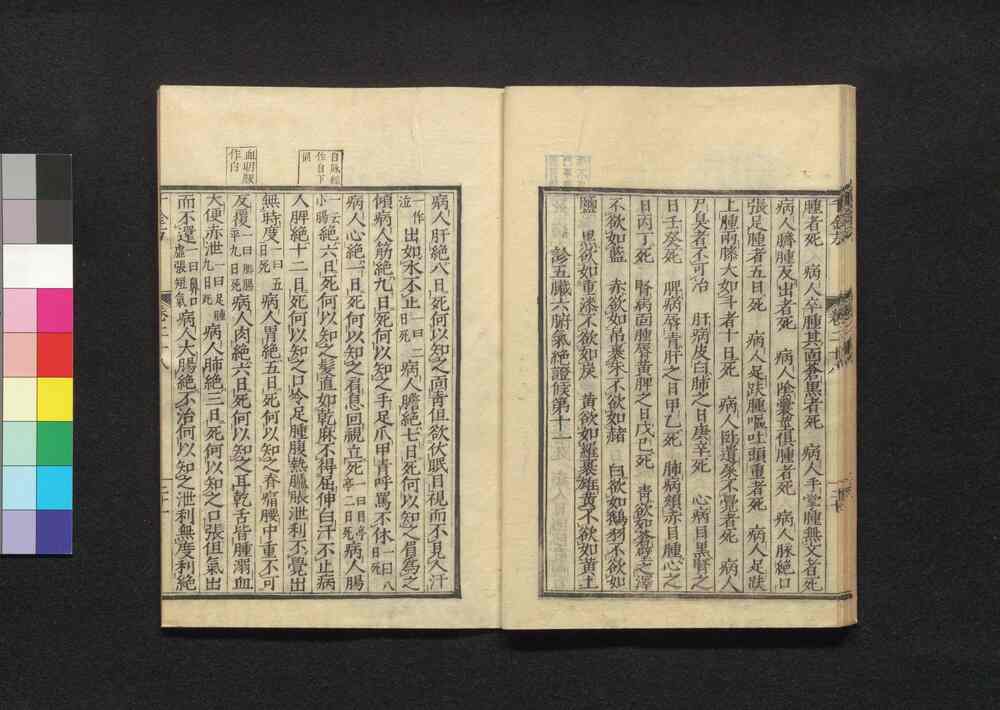 腫者死　病人卒腫其面蒼黑者死　病人手掌腫無文者死
病人臍腫反出者死　病人陰囊莖俱腫者死　病人脉絶口
張足腫者五日死　病人足趺腫嘔吐頭重者死　病人足趺
上腫兩膝大如斗者十日死　病人臥遺尿不覺者死　病人
尸臭者不可治　肝病皮白肺之日庚辛死　心病目黑腎之
日壬癸死　脾病唇青肝之日甲乙死　肺病頰赤目腫心之
日丙丁死　腎病面腫唇黃脾之日戊己死　青欲如蒼璧之澤
不欲如藍　赤欲如帛裹朱不欲如赭　白欲如鵝羽不欲如
鹽　黑欲如重漆不欲如炭　黃欲如羅裹雄黃不欲如黃土
診五臟六腑氣絶證候第十一
病人肝絶八日死何以知之面青但欲伏眠目視而不見人汗
一作泣出如水不止一曰二日死病人膽絶七日死何以知之眉爲之
傾病人筋絶九日死何以知之手足爪甲青呼罵不休一曰八日死
病人心絶一日死何以知之肩息回視立死一曰目亭亭二日死病人腸
一云小腸絶六日死何以知之髮直如乾麻不得屈伸白汗不止病
人脾絶十二日死何以知之口冷足腫腹熱臚脹泄利不覺出
無時度一曰五日死病人胃絶五日死何以知之脊痛腰中重不可
反覆一曰腓腸平九日死病人肉絶六日死何以知之耳乾舌皆腫溺血
大便赤泄一曰足腫九日死病人肺絶三日死何以知之口張但氣出
而不還一曰鼻口虛張短氣病人大腸絶不治何以知之泄利無度利絶
白脉經作自下同
血明版作白
卷二十八